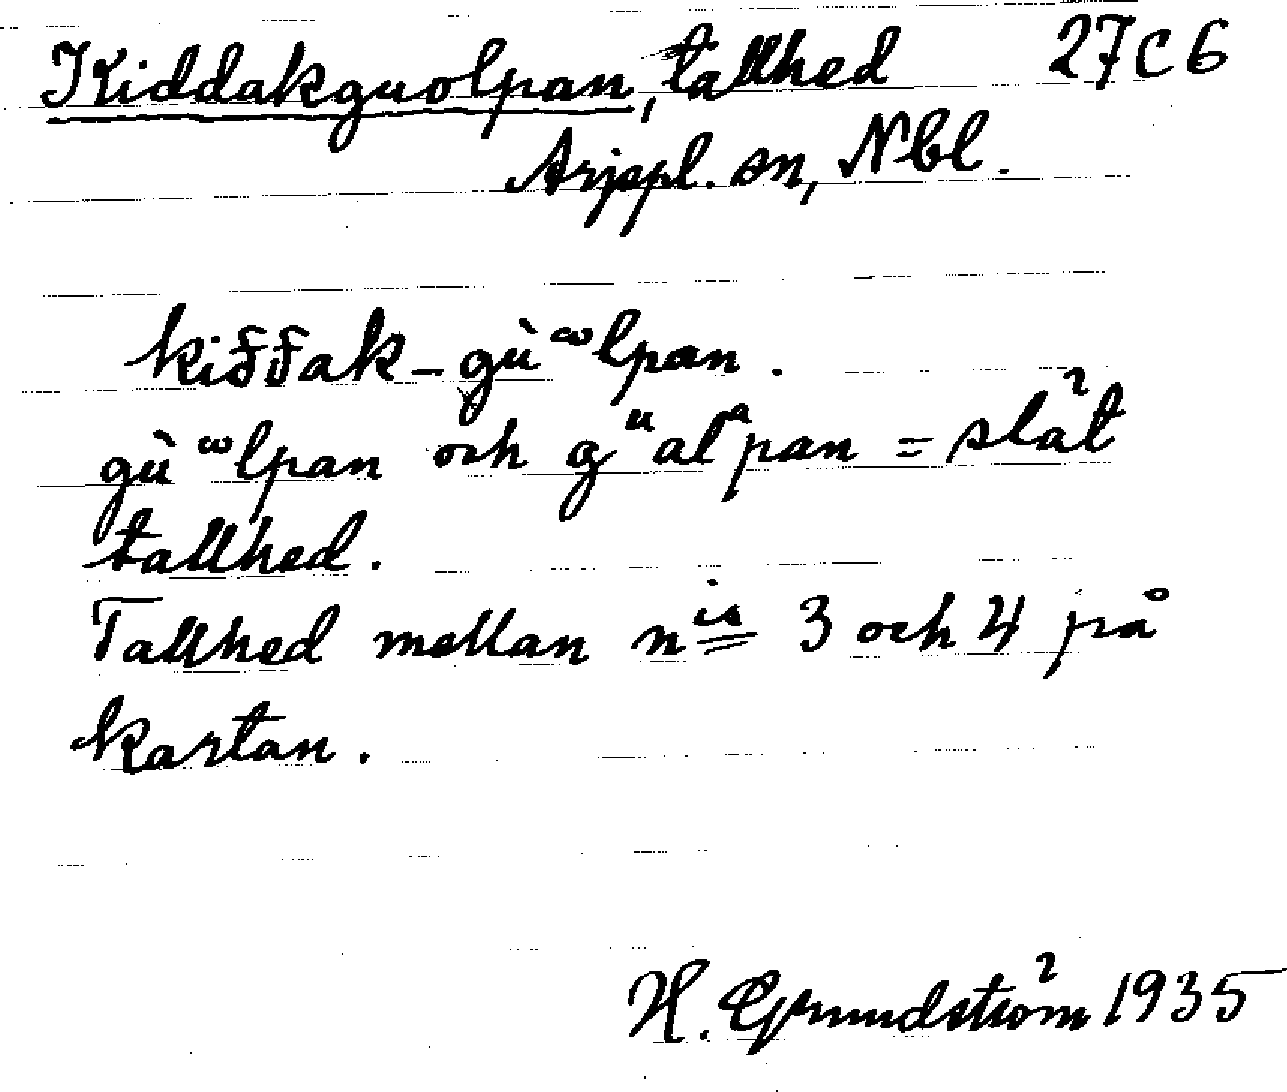 Kiddakguolpan, tallhed 27C6
Arjepl. sn, Nbl.
kiđđak-gùωlpan.
gùωlpan och gᵘalᵃpan = slät
tallhed.
Tallhed mellan nis 3 och 4 på
kartan.
H. Grundström 1935